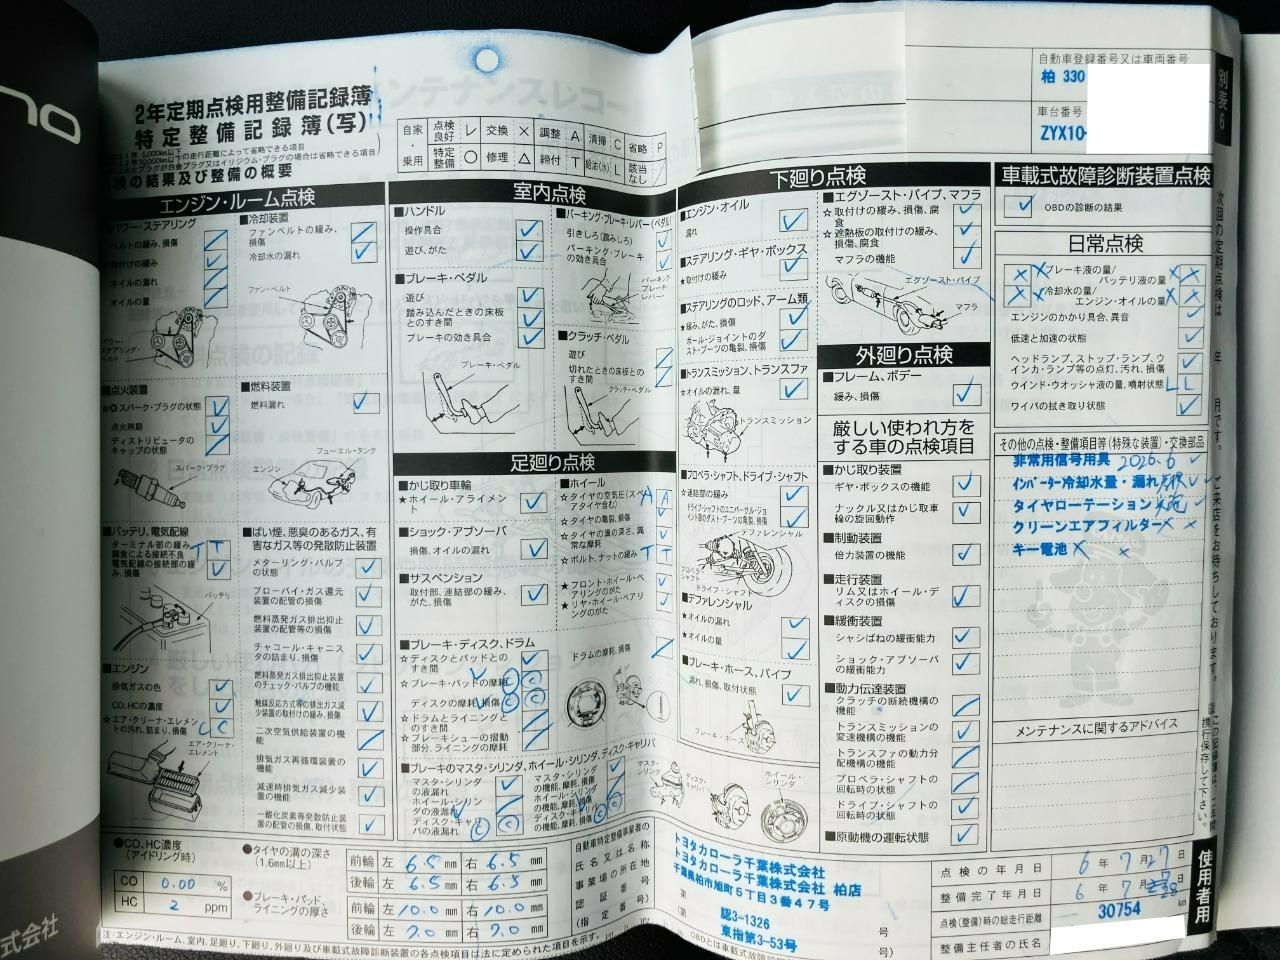 自動車登録番号又は車両番号
柏 330
車台番号
ZYX10-
別表6
2年定期点検用整備記録簿
特定整備記録簿(写)
検の結果及び整備の概要
自家・乗用
点検良好 レ 交換 × 調整 A 清掃 C 省略 P
特定整備 ○ 修理 △ 締付 T 給油(水) L 該当なし /
エンジン・ルーム点検
■パワー・ステアリング
ベルトの緩み、損傷
★取付けの緩み
オイルの漏れ
オイルの量
パワー・ステアリング・ベルト
■冷却装置
ファンベルトの緩み、損傷
冷却水の漏れ
ファン・ベルト
■点火装置
スパーク・プラグの状態
点火時期
ディストリビュータのキャップの状態
スパーク・プラグ
■燃料装置
燃料漏れ
フューエル・タンク
エンジン
■バッテリ、電気配線
ターミナル部の緩み、腐食による接続不良
電気配線の接続部の緩み、損傷
バッテリ
■ばい煙、悪臭のあるガス、有害なガス等の発散防止装置
メターリング・バルブの状態
ブローバイ・ガス還元装置の配管の損傷
燃料蒸発ガス排出抑止装置の配管等の損傷
チャコール・キャニスタの詰まり、損傷
燃料蒸発ガス排出抑止装置のチェック・バルブの機能
触媒反応方式等の排出ガス減少装置の取付けの緩み、損傷
二次空気供給装置の機能
排気ガス再循環装置の機能
減速時排気ガス減少装置の機能
一酸化炭素等発散防止装置の配管の損傷、取付状態
■エンジン
排気ガスの色
CO、HCの濃度
☆エア・クリーナ・エレメントの汚れ、詰まり、損傷
エア・クリーナ・エレメント
室内点検
■ハンドル
操作具合
遊び、がた
■ブレーキ・ペダル
遊び
踏み込んだときの床板とのすき間
ブレーキの効き具合
ブレーキ・ペダル
■パーキング・ブレーキ・レバー(ペダル)
引きしろ(踏みしろ)
パーキング・ブレーキの効き具合
パーキング・ブレーキ・レバー
■クラッチ・ペダル
遊び
切れたときの床板とのすき間
クラッチ・ペダル
足廻り点検
■かじ取り車輪
★ホイール・アライメント
■ショック・アブソーバ
損傷、オイルの漏れ
■サスペンション
取付部、連結部の緩み、がた、損傷
■ホイール
☆タイヤの空気圧(スペアタイヤ含む)
☆タイヤの亀裂、損傷
☆タイヤの溝の深さ、異常な摩耗
☆ボルト、ナットの緩み
★フロント・ホイール・ベアリングのがた
★リヤ・ホイール・ベアリングのがた
■ブレーキ・ディスク、ドラム
☆ディスクとパッドとのすき間
☆ブレーキ・パッドの摩耗
ディスクの摩耗、損傷
☆ドラムとライニングとのすき間
☆ブレーキシューの摺動部分、ライニングの摩耗
ドラムの摩耗、損傷
■ブレーキのマスタ・シリンダ、ホイール・シリンダ、ディスク・キャリパ
マスタ・シリンダの液漏れ
ホイール・シリンダの液漏れ
ディスク・キャリパの液漏れ
マスタ・シリンダの機能、摩耗、損傷
ホイール・シリンダの機能、摩耗、損傷
ディスク・キャリパの機能、摩耗、損傷
下廻り点検
■エンジン・オイル
漏れ
■ステアリング・ギヤ・ボックス
★取付けの緩み
■ステアリングのロッド、アーム類
★緩み、がた、損傷
ボール・ジョイントのダスト・ブーツの亀裂、損傷
■トランスミッション、トランスファ
☆オイルの漏れ、量
トランスミッション
■プロペラ・シャフト、ドライブ・シャフト
☆連結部の緩み
ドライブ・シャフトのユニバーサル・ジョイント部のダスト・ブーツの亀裂、損傷
デファレンシャル
プロペラ・シャフト
ドライブ・シャフト
■デファレンシャル
★オイルの漏れ
★オイルの量
■ブレーキ・ホース、パイプ
漏れ、損傷、取付状態
ブレーキ・ホース
マスタ・シリンダ
ディスク・キャリパ
ホイール・シリンダ
■エグゾースト・パイプ、マフラ
☆取付けの緩み、損傷、腐食
☆遮熱板の取付けの緩み、損傷、腐食
マフラの機能
エグゾースト・パイプ
マフラ
外廻り点検
■フレーム、ボデー
緩み、損傷
厳しい使われ方をする車の点検項目
■かじ取り装置
ギヤ・ボックスの機能
ナックル又はかじ取車輪の旋回動作
■制動装置
倍力装置の機能
■走行装置
リム又はホイール・ディスクの損傷
■緩衝装置
シャシばねの緩衝能力
ショック・アブソーバの緩衝能力
■動力伝達装置
クラッチの断続機構の機能
トランスミッションの変速機構の機能
トランスファの動力分配機構の機能
プロペラ・シャフトの回転時の状態
ドライブ・シャフトの回転時の状態
■原動機の運転状態
車載式故障診断装置点検
OBDの診断の結果
日常点検
ブレーキ液の量/バッテリ液の量
冷却水の量/エンジン・オイルの量
エンジンのかかり具合、異音
低速と加速の状態
ヘッドランプ、ストップ・ランプ、ウインカ・ランプ等の点灯、汚れ、損傷
ウインド・ウオッシャ液の量、噴射状態 L L
ワイパの拭き取り状態
その他の点検・整備項目等(特殊な装置)・交換部品
非常用信号用具 2026.6
インバーター冷却水量・漏れ
タイヤローテーション
クリーンエアフィルター × ×
キー電池 × ×
メンテナンスに関するアドバイス
●CO、HC濃度(アイドリング時)
CO 0.00 %
HC 2 ppm
●タイヤの溝の深さ(1.6mm以上)
前輪 左 6.5 mm 右 6.5 mm
後輪 左 6.5 mm 右 6.5 mm
●ブレーキ・パッド、ライニングの厚さ
前輪 左 10.0 mm 右 10.0 mm
後輪 左 7.0 mm 右 7.0 mm
自動車特定整備事業者の氏名又は名称
事業場の所在地
認証番号
(指定番号)
トヨタカローラ千葉株式会社
トヨタカローラ千葉株式会社 柏店
千葉県柏市旭町5丁目3番47号
認3-1326
東指第3-53号
点検の年月日 6年7月27日
整備完了年月日 6年7月28日
点検(整備)時の総走行距離 30754 km
整備主任者の氏名
使用者用
式会社